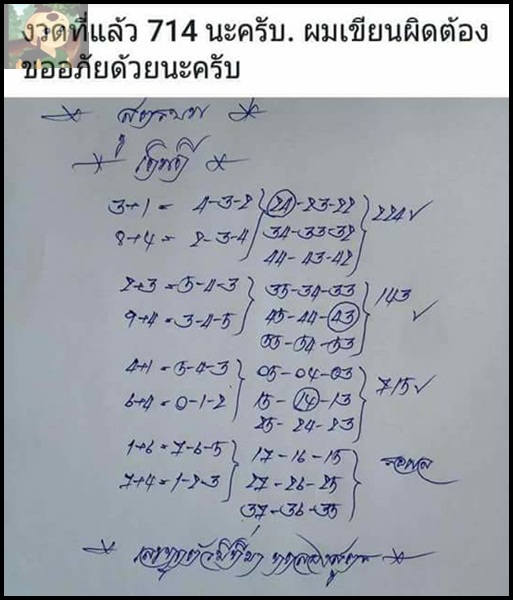 งวดที่แล้ว 714 นะครับ. ผมเขียนผิดต้อง
ขออภัยด้วยนะครับ
3+1 = 4-3-2 24-23-22 224✓
8+4 = 2-3-4 34-33-32
44-43-42
2+3 = 5-4-3 35-34-33 143
9+4 = 3-4-5 45-44-43 ✓
55-54-53
4+1 = 5-4-3 05-04-03 715✓
6+4 = 0-1-2 15-14-13
25-24-23
1+6 = 7-6-5 17-16-15
7+4 = 1-2-3 27-26-25
37-36-35